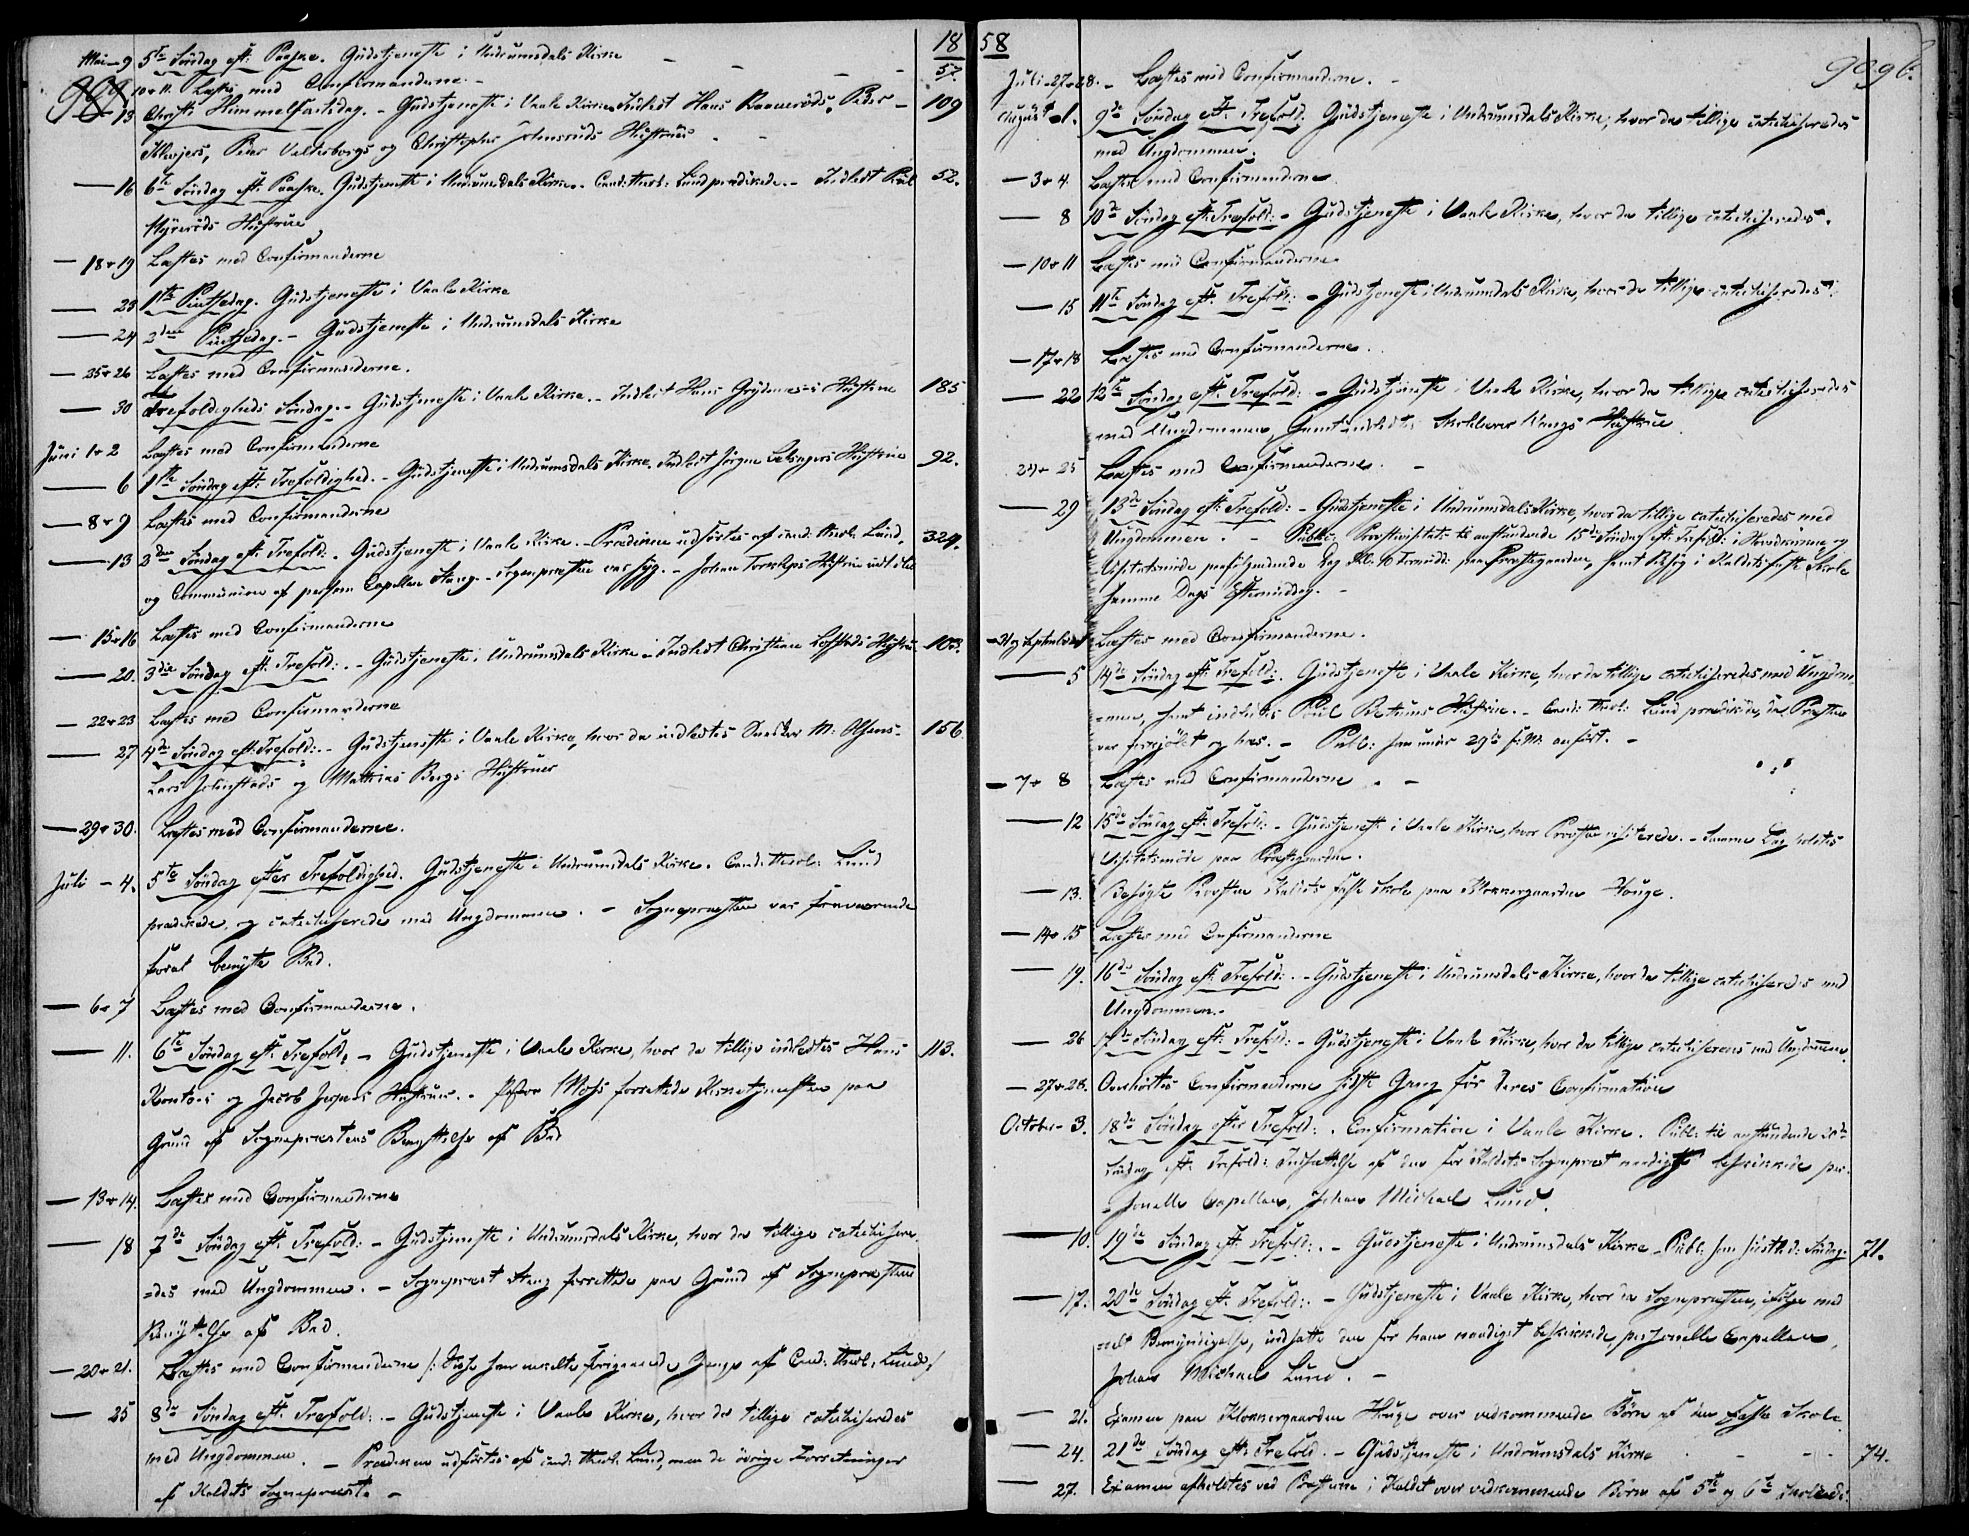 1858
Mai - 9 5te Søndag eft: Paaske. Gudstjeneste i Undrumsdals Kirke - - - - 57.
10 & 11. Læstes med Confirmanderne. -
- 13 Christi Himmelfartsdag. - Gudstjeneste i Vaale Kirke. Indledt Hans Peder - 109
Peder og Christopher Hustruer.
- 16 6te Søndag eft. Paaske. Gudstjeneste i Undrumsdals Kirke. Cand: theol: Lund prædikede. - Indledt 52.
Hustrue
- 18 & 19 Læstes med Confirmanderne
- 23 1ste Pintsedag. Gudstjeneste i Vaale Kirke
- 24 2den Pintsedag. - Gudstjeneste i Undrumsdals Kirke
- 25 & 26 Læstes med Confirmanderne.
- 30 Trefoldigheds Søndag. - Gudstjeneste i Vaale Kirke. - Indledt Hans Hustrue 185
Juni 1 & 2 Læstes med Confirmanderne
- 6 1ste Søndag eft: Trefoldighed. - Gudstjeneste i Undrumsdals Kirke. Indledt Jørgen Hustrue 92.
- 8 & 9 Læstes med Confirmanderne
- 13 2den Søndag eft: Trefold: - Gudstjeneste i Vaale Kirke. - Prædiken udførtes af cand: theol: Lund, 324.
og Communion af person: Capellan Stang. - Sognepræsten var syg. - Johan Hustrue indledt
- 15 & 16 Læstes med Confirmanderne
- 20. 3die Søndag eft: Trefold: - Gudstjeneste i Undrumsdals Kirke. - Indledt Hustrue 103.
- 22 & 23 Læstes med Confirmanderne
- 27 4de Søndag eft: Trefold: - Gudstjeneste i Vaale Kirke, hvor da indledtes M: Olsens 156
Lars og Mathias Bergs Hustruer
- 29 & 30. Læstes med Confirmanderne.
Juli - 4. 5te Søndag efter Trefoldighed. Gudstjeneste i Undrumsdals Kirke. Cand: theol: Lund
prædikede og catechiserede med Ungdommen. - Sognepræsten var fraværende
for at benytte Bad.
- 6 & 7 Læstes med Confirmanderne.
- 11. 6te Søndag eft: Trefold: - Gudstjeneste i Vaale Kirke, hvor da tillige indledtes Hans 113.
og Jacob Hustruer. - Pastor Moss forrettede Kirketjenesten paa
Grund af Sognepræstens Benyttelse af Bad
- 13 & 14. Læstes med Confirmanderne
- 18 7de Søndag eft: Trefold: - Gudstjeneste i Undrumsdals Kirke, hvor da tillige catechisere-
=des med Ungdommen. - Sogneprest Stang forrettede paa Grund af Sognepræstens
Benyttelse af Bad.
- 20 & 21. Læstes med Confirmanderne /: Disse som enkelte foregaaende Gange af Cand: theol: Lund :/
- 25 8de Søndag eft: Trefold: - Gudstjeneste i Vaale Kirke, hvor da tillige catechiseredes
med Ungdommen. - Prædiken udførtes af cand: theol: Lund, men de øvrige Forretninger
af Kaldets Sognepræst. -
Juli - 27 & 28. - Læstes med Confirmanderne. -
August - 1. 9de Søndag eft: Trefold. Gudstjeneste i Undrumsdals Kirke, hvor da tillige catechiseredes
med Ungdommen.
- 3 & 4 Læstes med Confirmanderne
- 8 10de Søndag eft: Trefold: - Gudstjeneste i Vaale Kirke, hvor da tillige catechiseredes.
- 10 & 11 Læstes med Confirmanderne
- 15 11te Søndag eft: Trefold: - Gudstjeneste i Undrumsdals Kirke, hvor da tillige catechiseredes.
- 17 & 18 Læstes med Confirmanderne.
- 22 12te Søndag eft: Trefold: - Gudstjeneste i Vaale Kirke, hvor da tillige catechiseredes
med Ungdommen, samt indledtes Skolelærer Hustrue
24 & 25 Læstes med Confirmanderne. -
- 29 13de Søndag eft: Trefold: - Gudstjeneste i Undrumsdals Kirke, hvor da tillige catechiseredes med
Ungdommen. - Publ: Provstevisitats til anstundende 15de Søndag eft: Trefold: i Hovedkirken og
Visitatsmøde paafølgende Dag Kl. 10 Formidd: paa Præstegaarden, samt Besøg i Kaldets faste Skole
samme Dags Eftermiddag. -
- 31 og September 1 Læstes med Confirmanderne.
- 5 14de Søndag eft: Trefold: Gudstjeneste i Vaale Kirke, hvor da tillige catechiseredes med Ungdom-
=men, samt indledtes Hustrue. - Cand: theol: Lund prædikede, da Præsten
var forkjølet og hæs. - Publ: som under 29de f: M: anført. -
- 7 & 8 Læstes med Confirmanderne. -
- 12 15de Søndag eft: Trefold: - Gudstjeneste i Vaale Kirke, hvor Provsten visiterede. - Samme Dag holdtes
Visitatsmøde paa Præstegaarden.
- 13. Besøgte Provsten Kaldets faste Skole paa Klokkergaarden Houge.
- 14 & 15 Læstes med Confirmanderne
- 19. 16de Søndag eft: Trefold: - Gudstjeneste i Undrumsdals Kirke, hvor da tillige catechiseredes med
Ungdommen. -
- 26 17de Søndag eft: Trefold: - Gudstjeneste i Vaale Kirke, hvor da tillige catechiseredes med Ungdommen.
- 27 & 28. Overhørtes Confirmanderne sidste Gang før deres Confirmation
October - 3. 18de Søndag efter Trefold: . Confirmation i Vaale Kirke. Publ: til anstundende 20de
Søndag eft: Trefold: Indsættelse af den for Kaldets Sogneprest naadigst beskikkede per-
=sonelle Capellan, Johan Michael Lund.
- 10. 19de Søndag eft: Trefold: . - Gudstjeneste i Undrumsdals Kirke. Publ: som sidsth: Søndag. 71.
- 17. 20de Søndag eft: Trefold: . - Gudstjeneste i Vaale Kirke, hvor da Sognepræsten, ifølge med
=delt Bemyndigelse, indsatte den for ham naadigst beskikkede personelle Capellan,
Johan Michael Lund. -
- 21. Examen paa Klokkergaarden Houge over vedkommende Børn af den faste Skole
- 24. 21de Søndag eft: Trefold. - Gudstjeneste i Undrumsdals Kirke - - - 74.
- 27. Examen afholdtes ved Præsterne i Kaldet over vedkommende Børn af 5te og 6te